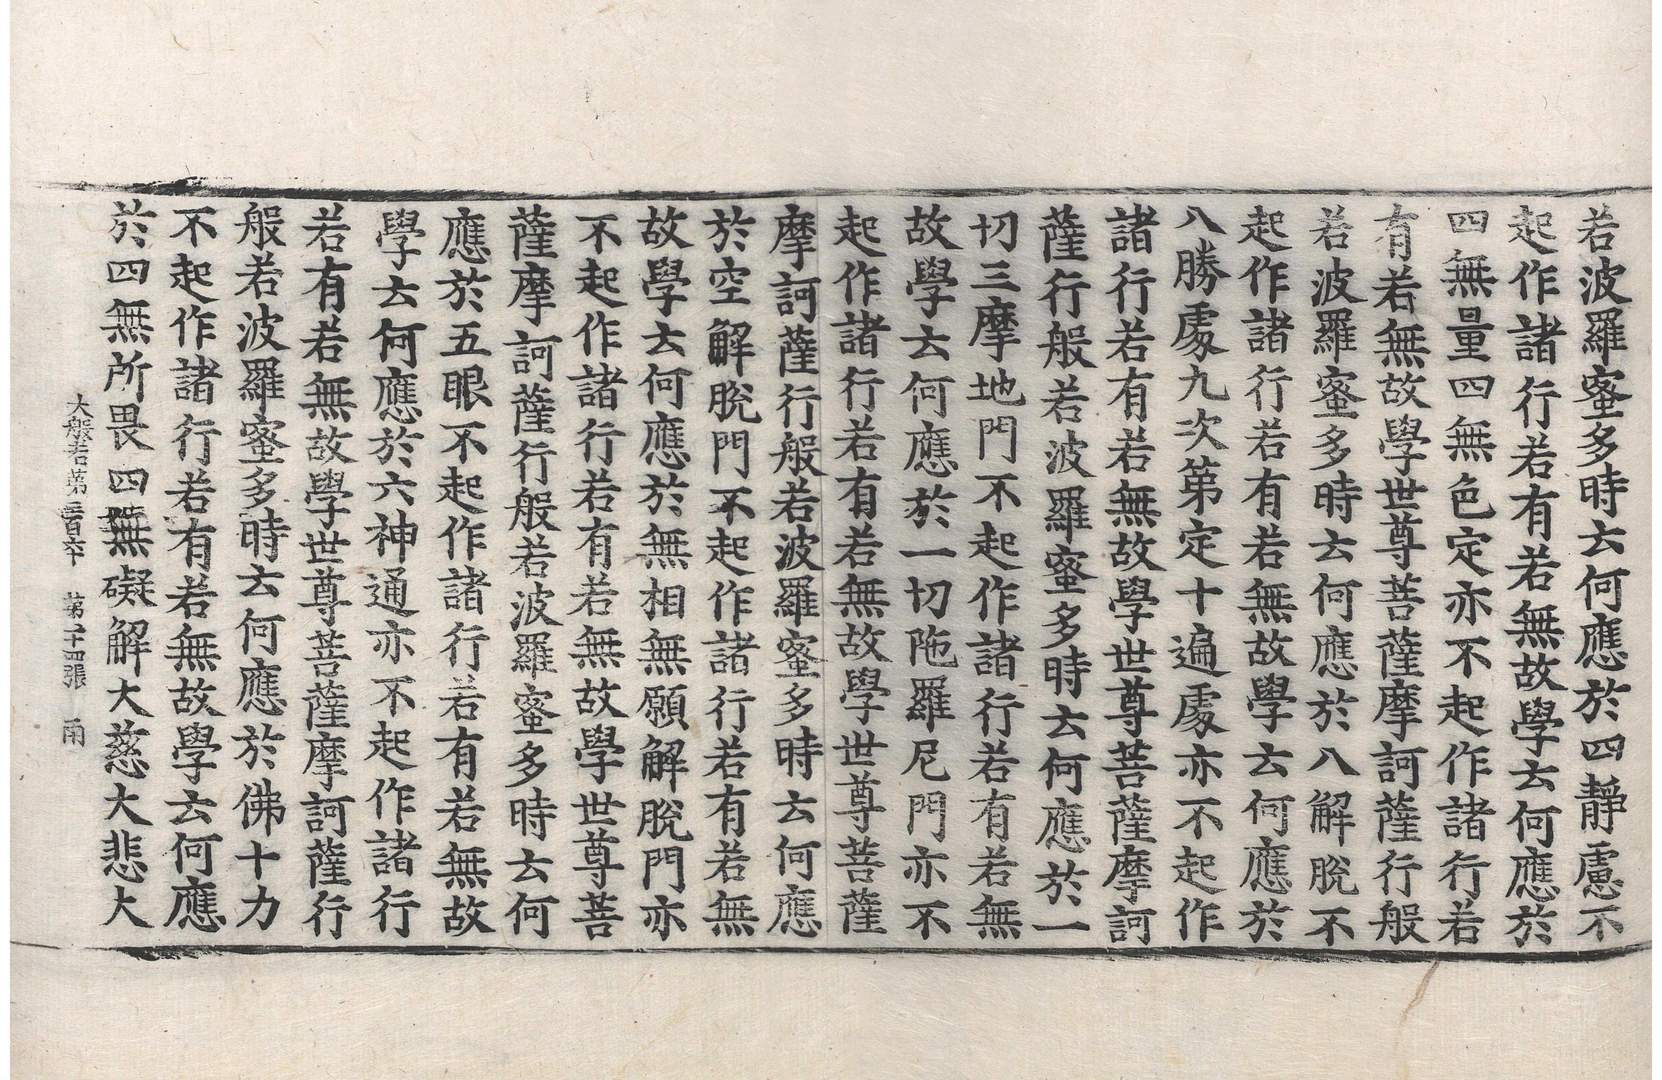 若波羅蜜多時云何應於四靜慮不
起作諸行若有若無故學云何應於
四無量四無色定亦不起作諸行若
有若無故學世尊菩薩摩訶薩行般
若波羅蜜多時云何應於八解脫不
起作諸行若有若無故學云何應於
八勝處九次第定十遍處亦不起作
諸行若有若無故學世尊菩薩摩訶
薩行般若波羅蜜多時云何應於一
切三摩地門不起作諸行若有若無
故學云何應於一切陁羅尼門亦不
起作諸行若有若無故學世尊菩薩
摩訶薩行般若波羅蜜多時云何應
於空解脫門不起作諸行若有若無
故學云何應於無相無願解脫門亦
不起作諸行若有若無故學世尊菩
薩摩訶薩行般若波羅蜜多時云何
應於五眼不起作諸行若有若無故
學云何應於六神通亦不起作諸行
若有若無故學世尊菩薩摩訶薩行
般若波羅蜜多時云何應於佛十力
不起作諸行若有若無故學云何應
於四無所畏四無礙解大慈大悲大
大般若第三百六十 第二十四張 雨